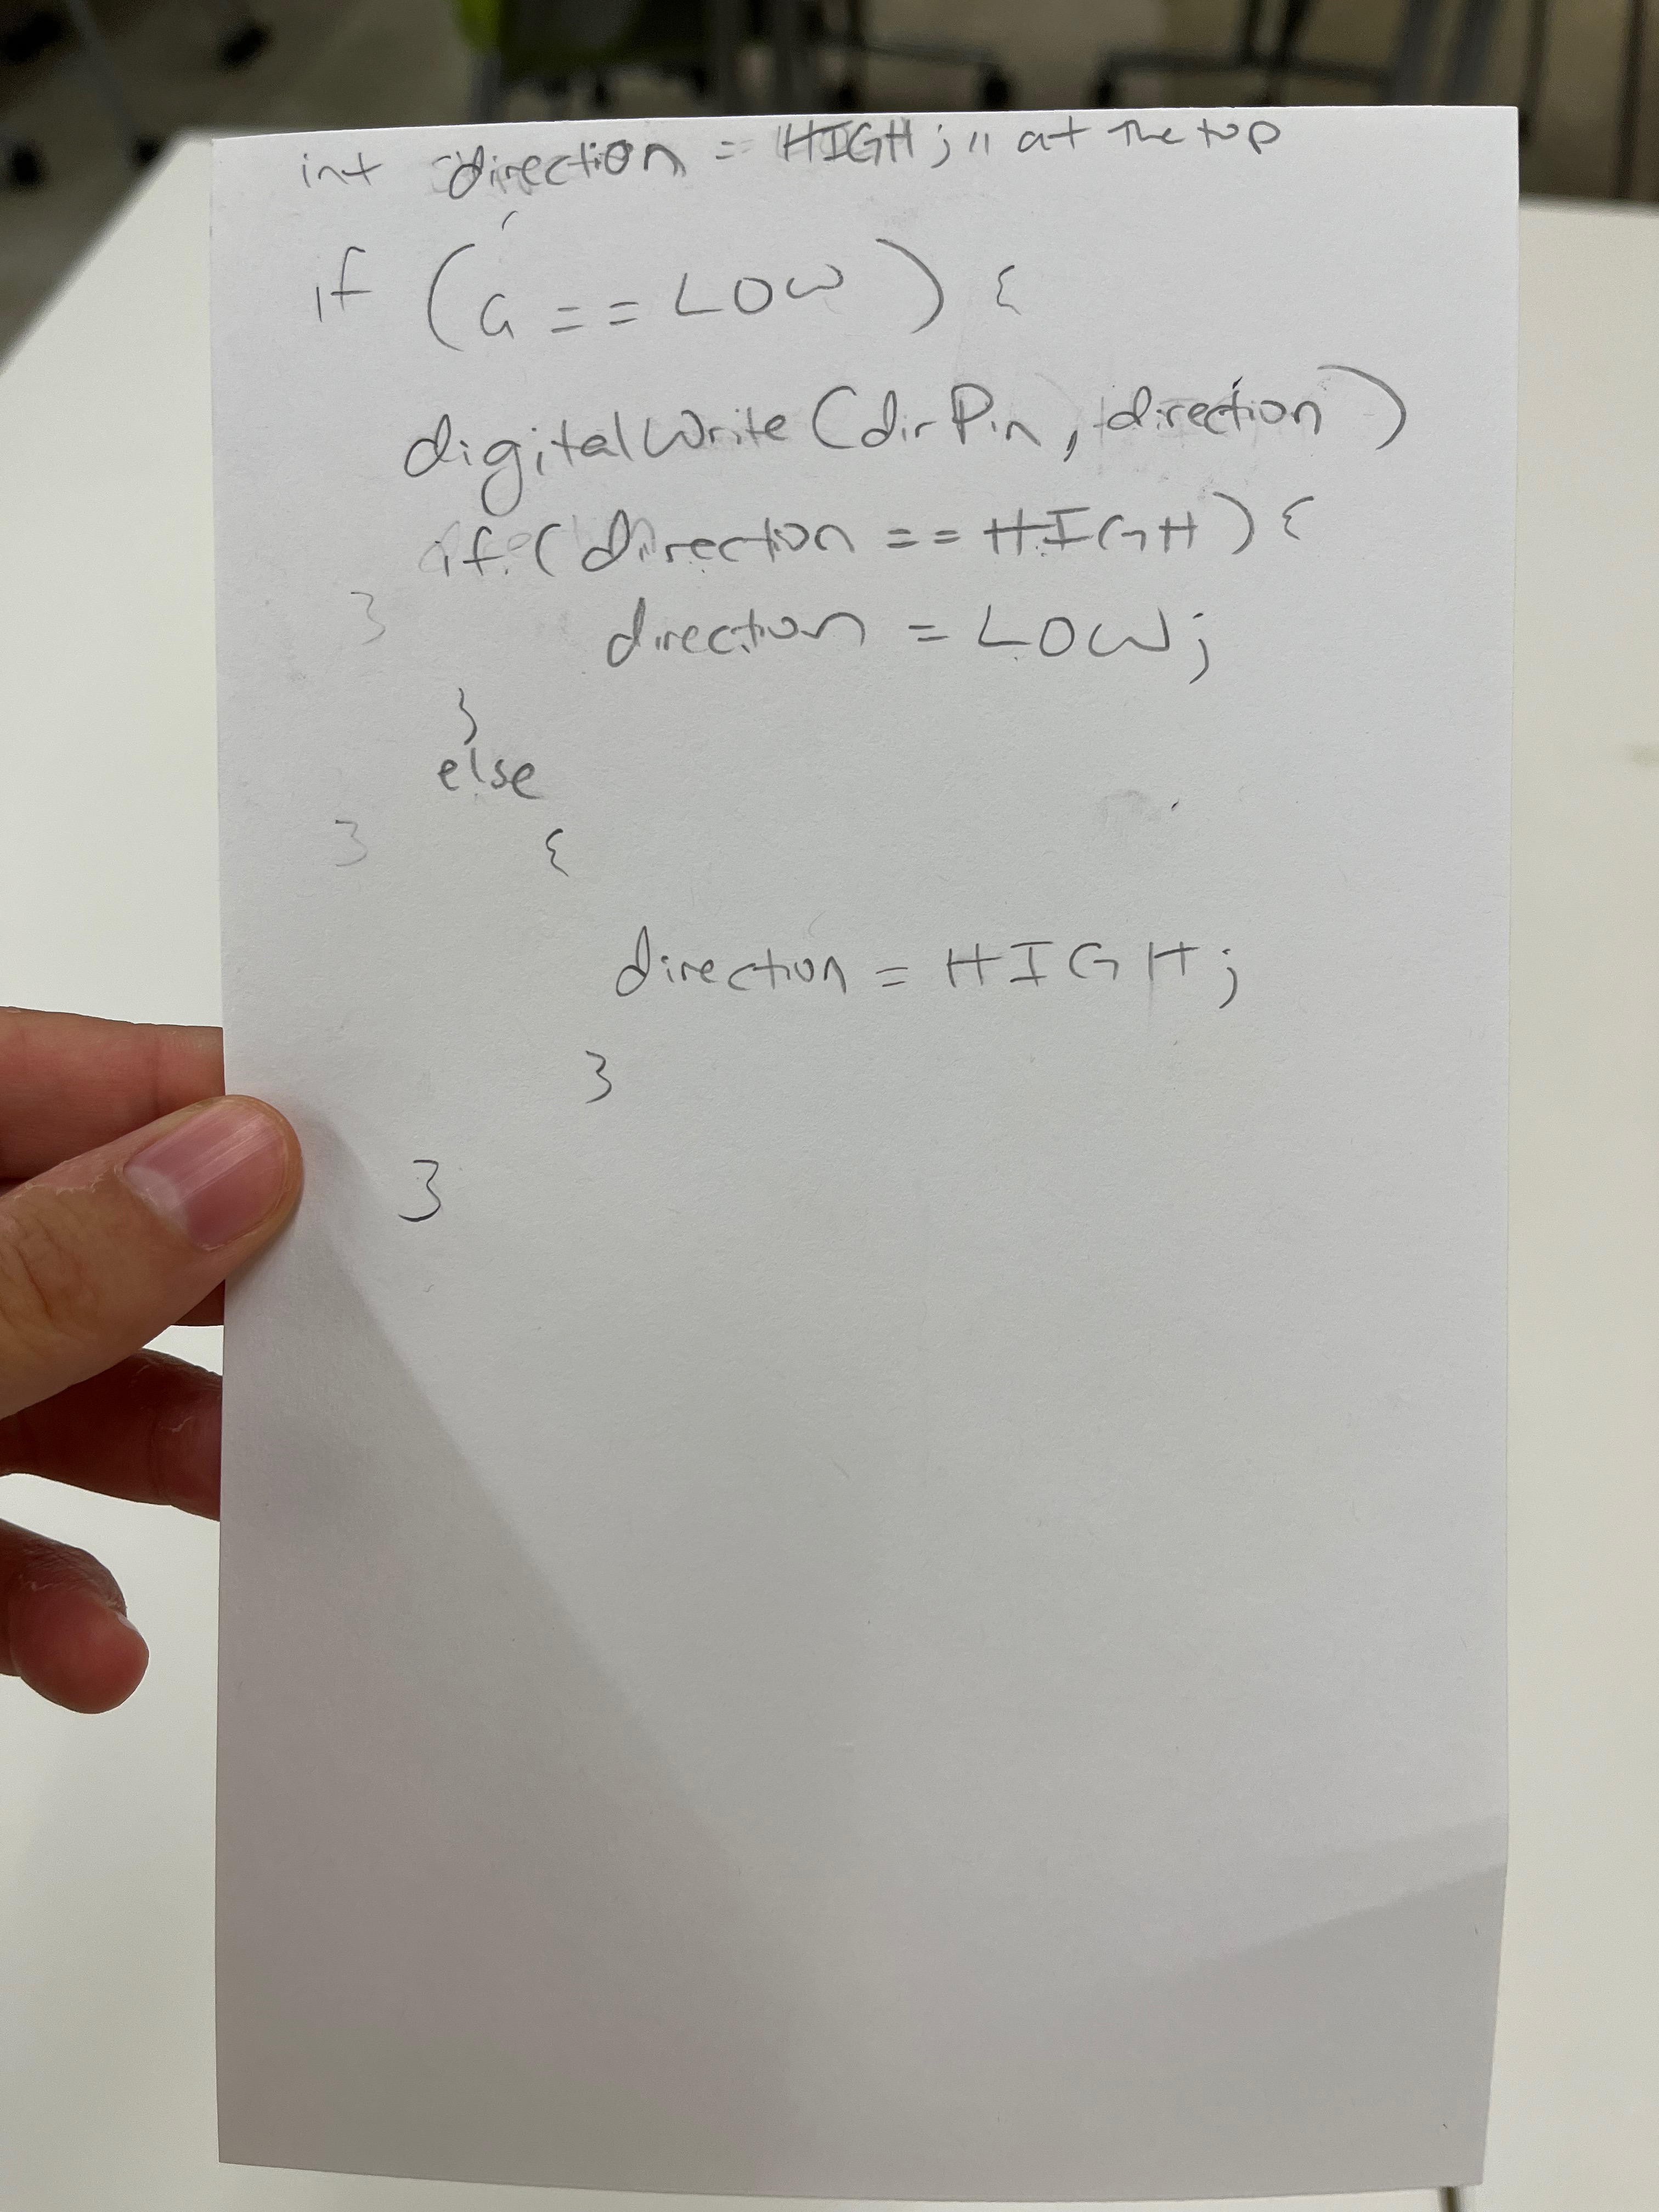 int direction = HIGH; // at the top
if (G == LOW) {
digitalWrite (dirPin, direction)
if (direction == HIGH) {
}
direction = LOW;
}
else
}
{
direction = HIGH;
}
}